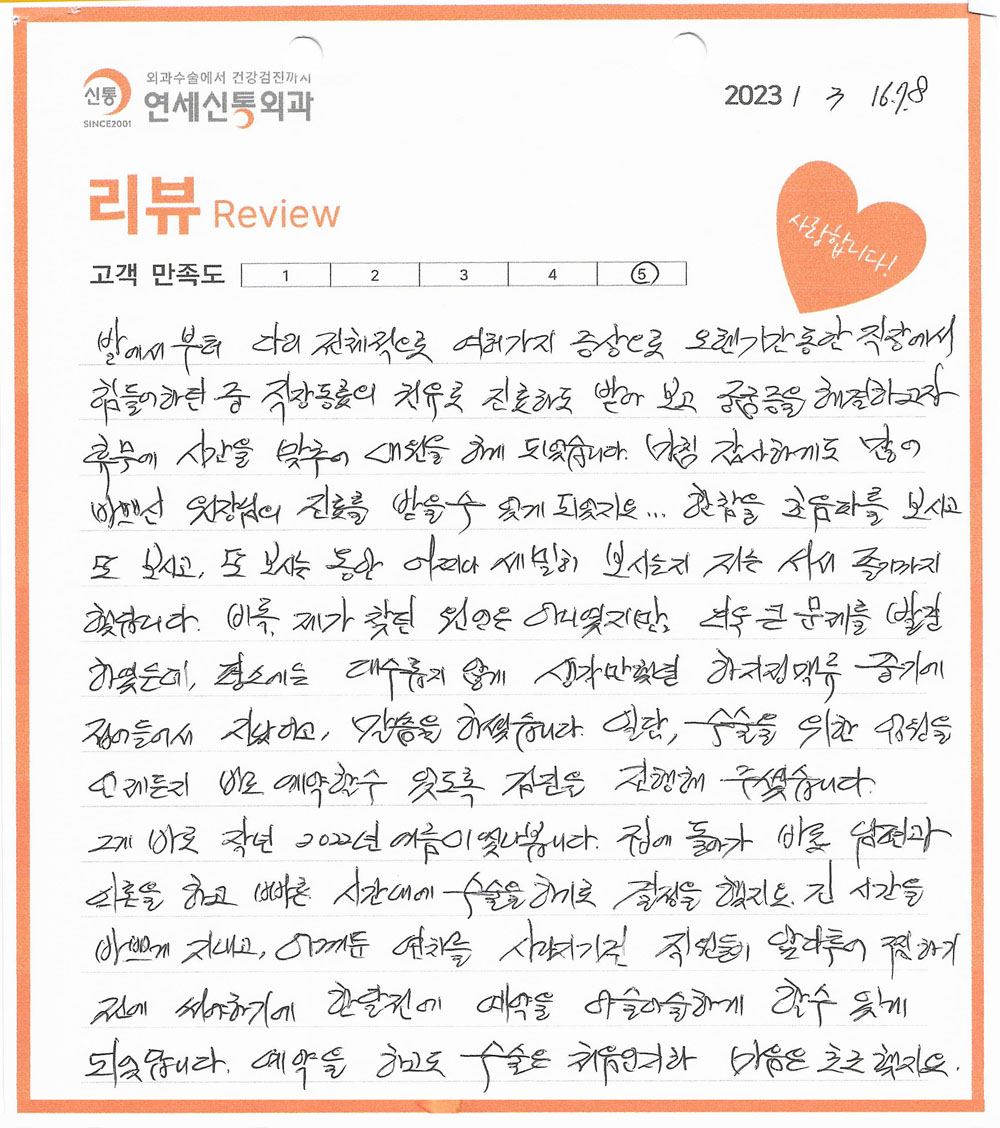 외과수술에서 건강검진까지
신통
연세신통외과
SINCE2001
2023 1 3 16:78
리뷰 Review
사랑합니다!
고객 만족도 1 2 3 4 5
발에서부터 다리 전체적으로 여러가지 증상으로 오랜기간동안 직장에서
힘들어하던 중 직장동료의 권유로 진료하도 받아 보고 궁금증을 해결하고자
휴무에 시간을 맞추어 내원을 하게 되었습니다. 마침 감사하게도 많이
바쁘신 원장님의 진료를 받을수 있게 되었지요... 한참을 초음파를 보시고
또 보시고, 또 보시는 동안 어찌나 세밀히 보시는지 저는 서서 졸기까지
했습니다. 비록, 제가 찾던 원인은 아니였지만, 더욱 큰 문제를 발견
하였는데, 평소에는 대수롭지 않게 생각만했던 하지정맥류 줄기에
접어들어서 지났다고, 말씀을 하셨습니다. 일단, 수술을 위한 입원을
언제든지 바로 예약할수 있도록 검진을 진행해 주셨습니다.
그게 바로 작년 2022년 여름이였나봅니다. 집에 돌아가 바로 남편과
의논을 하고 빠른 시간내에 수술을 하기로 결정을 했지요. 긴 시간을
바쁘게 지내고, 아껴둔 연차를 사라지기전 직원들이 앞다투어 찜하기
전에 써야하기에 한달전에 예약을 아슬아슬하게 할수 있게
되었답니다. 예약을 하고도 수술은 처음인지라 마음은 초조했지요.